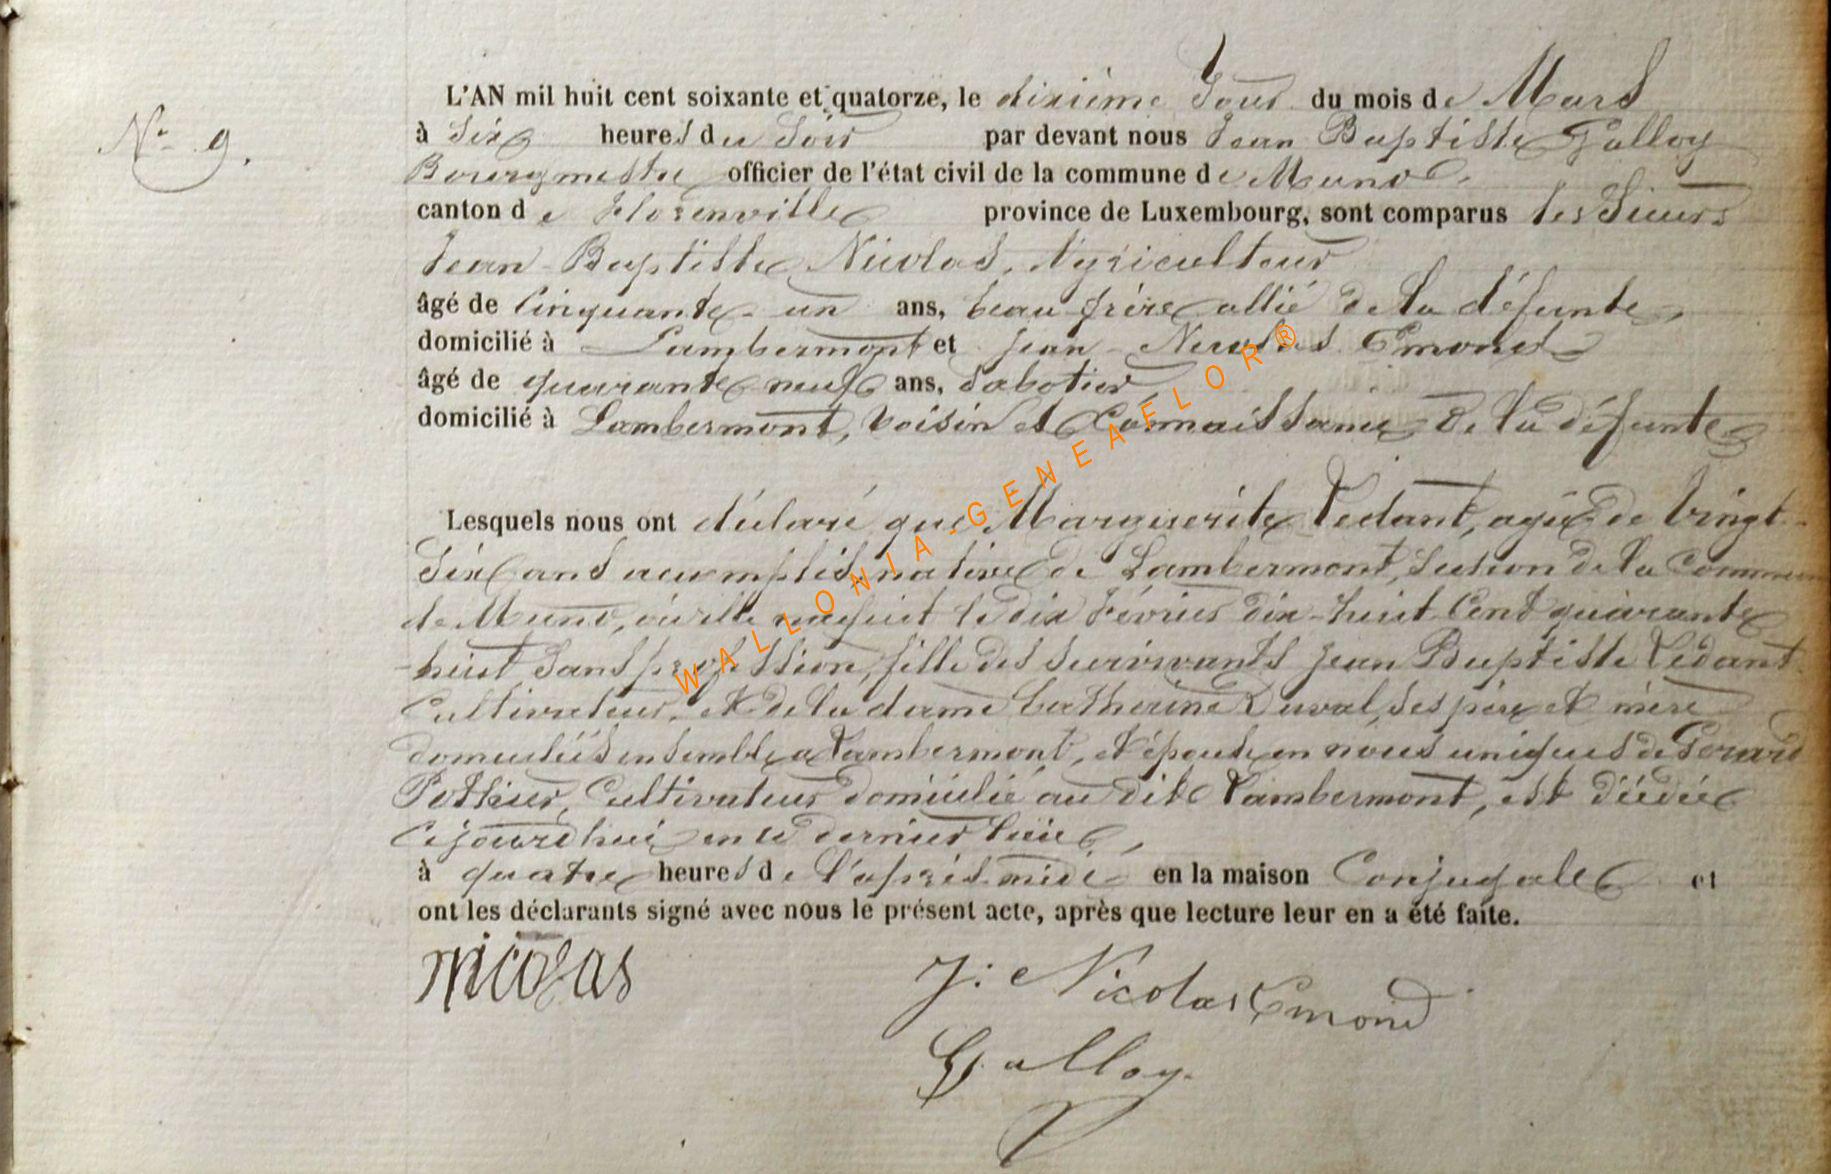 N° 9.
L'AN mil huit cent soixante et quatorze, le dixième Jour du mois de Mars
à Six heures du Soir par devant nous Jean Baptiste Galloy
Bourgmestre officier de l'état civil de la commune de Muno,
canton de Florenville province de Luxembourg, sont comparus les Sieurs
Jean-Baptiste Nicolas, Agriculteur
âgé de Cinquante-un ans, beau frère allié de la défunte,
domicilié à Lambermont et Jean-Nicolas Emond
âgé de quarante neuf ans, Sabotier
domicilié à Lambermont, voisin et Connaissance de la défunte
Lesquels nous ont déclaré que Marguerite Ledant, agée de vingt-
Six ans accomplis, native de Lambermont, Section de la Commune
de Muno, où elle naquit le dix Février dix-huit Cent quarante
-huit, Sans profession, fille des survivants Jean Baptiste Ledant
Cultivateur, et de la dame Catherine Duval, ses père et mère
domiciliés ensemble à Lambermont, et épouse en noces uniques de Gérard
Pothier, Cultivateur domicilié au dit Lambermont, est décédée
Cejourd'hui en ce dernier lieu,
à quatre heures de l'après midi en la maison Conjugale et
ont les déclarants signé avec nous le présent acte, après que lecture leur en a été faite.
nicolas
J: Nicolas Emond
Galloy
WALLONIA-GENEAFLOR®